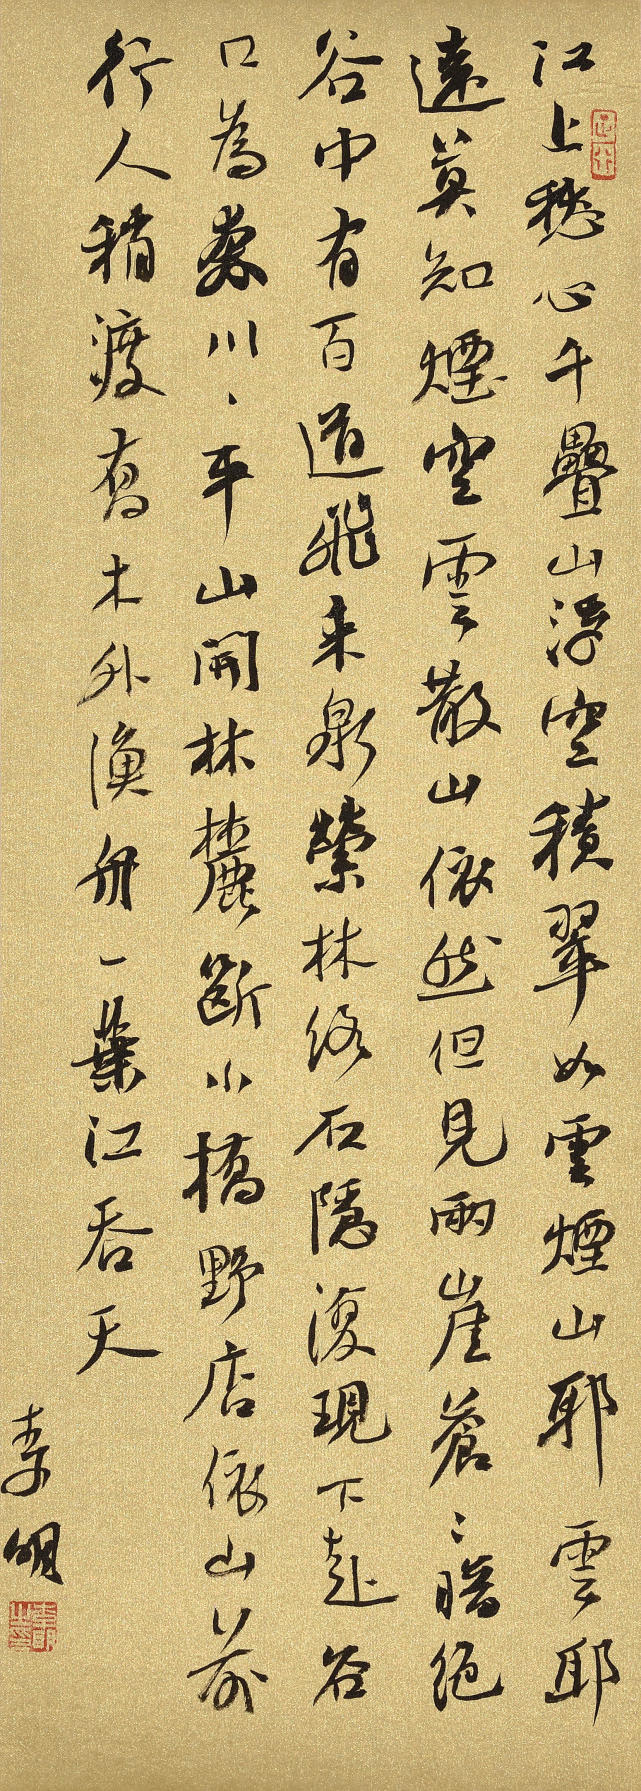 江上愁心千疊山浮空積翠如雲煙山耶雲耶
遠莫知煙空雲散山依然但見兩崖蒼〻暗絕
谷中有百道飛来泉縈林絡石隱復現下赴谷
口為奔川〻平山開林麓斷小橋野店依山前
行人稍渡喬木外漁舟一葉江吞天
李明